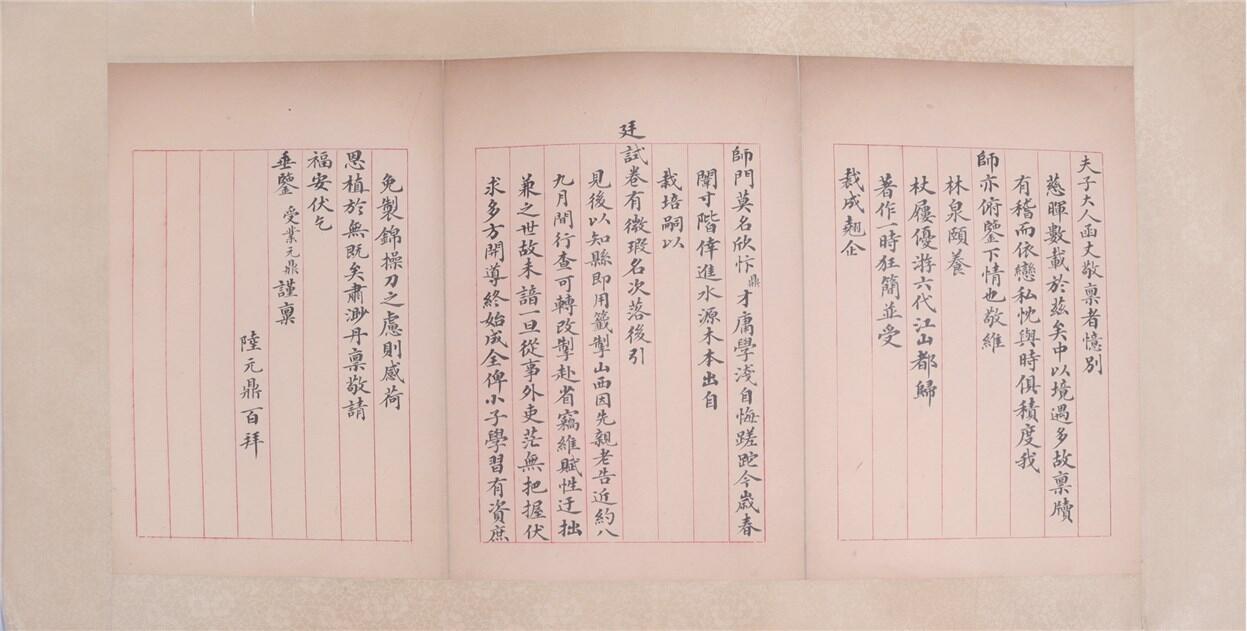 夫子大人函丈敬稟者憶別
慈暉數載於茲矣中以境遇多故稟牘
有稽而依戀私忱與時俱積度我
師亦俯鑒下情也敬維
林泉頤養
杖屨優游六代江山都歸
著作一時狂簡並受
裁成翹企
師門莫名欣忭鼎才庸學淺自悔蹉跎今歲春
闈寸階倖進水源木本出自
栽培嗣以
廷試卷有微瑕名次落後引
見後以知縣即用籤掣山西因先親老告近約八
九月間行查可轉改掣赴省竊維賦性迂拙
兼之世故未諳一旦從事外吏茫無把握伏
求多方開導終始成全俾小子學習有資庶
免製錦操刀之慮則感荷
恩植於無既矣肅渺丹稟敬請
福安伏乞
垂鑒 受業元鼎謹稟
陸元鼎百拜